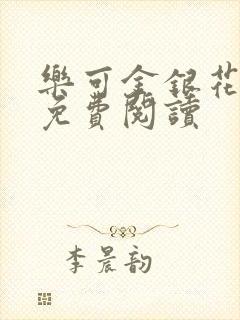 樂可金銀花
免費閱讀
李晨韵